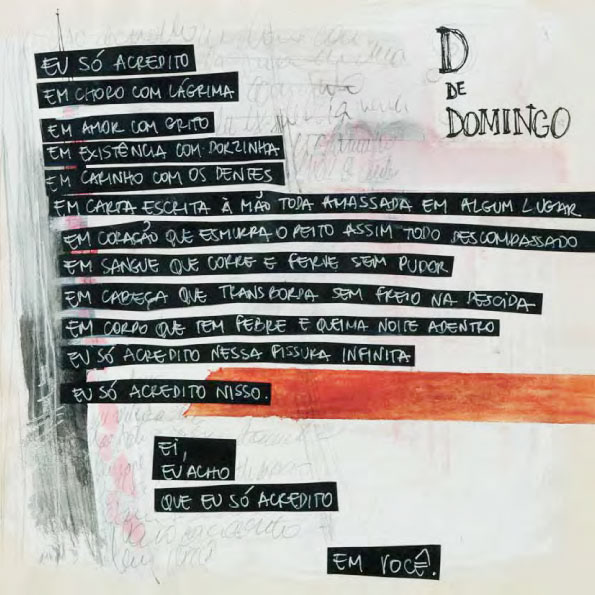 D
DE
DOMINGO
EU SÓ ACREDITO
EM CHORO COM LÁGRIMA
EM AMOR COM GRITO
EM EXISTÊNCIA COM DORZINHA
EM CARINHO COM OS DENTES
EM CARTA ESCRITA À MÃO TODA AMASSADA EM ALGUM LUGAR
EM CORAÇÃO QUE ESMURRA O PEITO ASSIM TODO DESCOMPASSADO
EM SANGUE QUE CORRE E FERVE SEM PUDOR
EM CABEÇA QUE TRANSBORDA SEM FREIO NA DESCIDA
EM CORPO QUE TEM FEBRE E QUEIMA NOITE ADENTRO
EU SÓ ACREDITO NESSA FISSURA INFINITA
EU SÓ ACREDITO NISSO.
EI,
EU ACHO
QUE EU SÓ ACREDITO
EM VOCÊ.